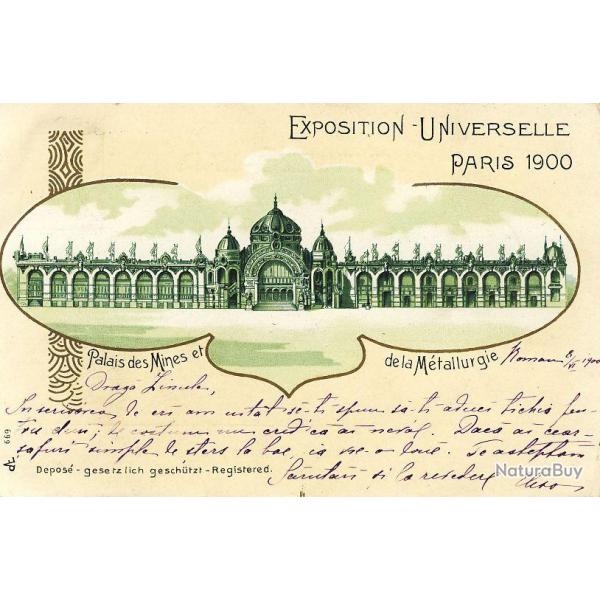 Exposition-Universelle
Paris 1900
Palais des Mines et de la Métallurgie
Roman 8/VI 1900
Dragă
In scrisoarea de eri am uitat sĕ-ti spun să-ti aduci tichia pen-
tru dus; costum nu cred că ai nevoe. Dacă ai cear-
safuri simple de sters la bae, ia vre-o două. Te asteptăm
Sărutări si la revedere
669
Deposé - gesetzlich geschützt - Registered.
NaturaBuy